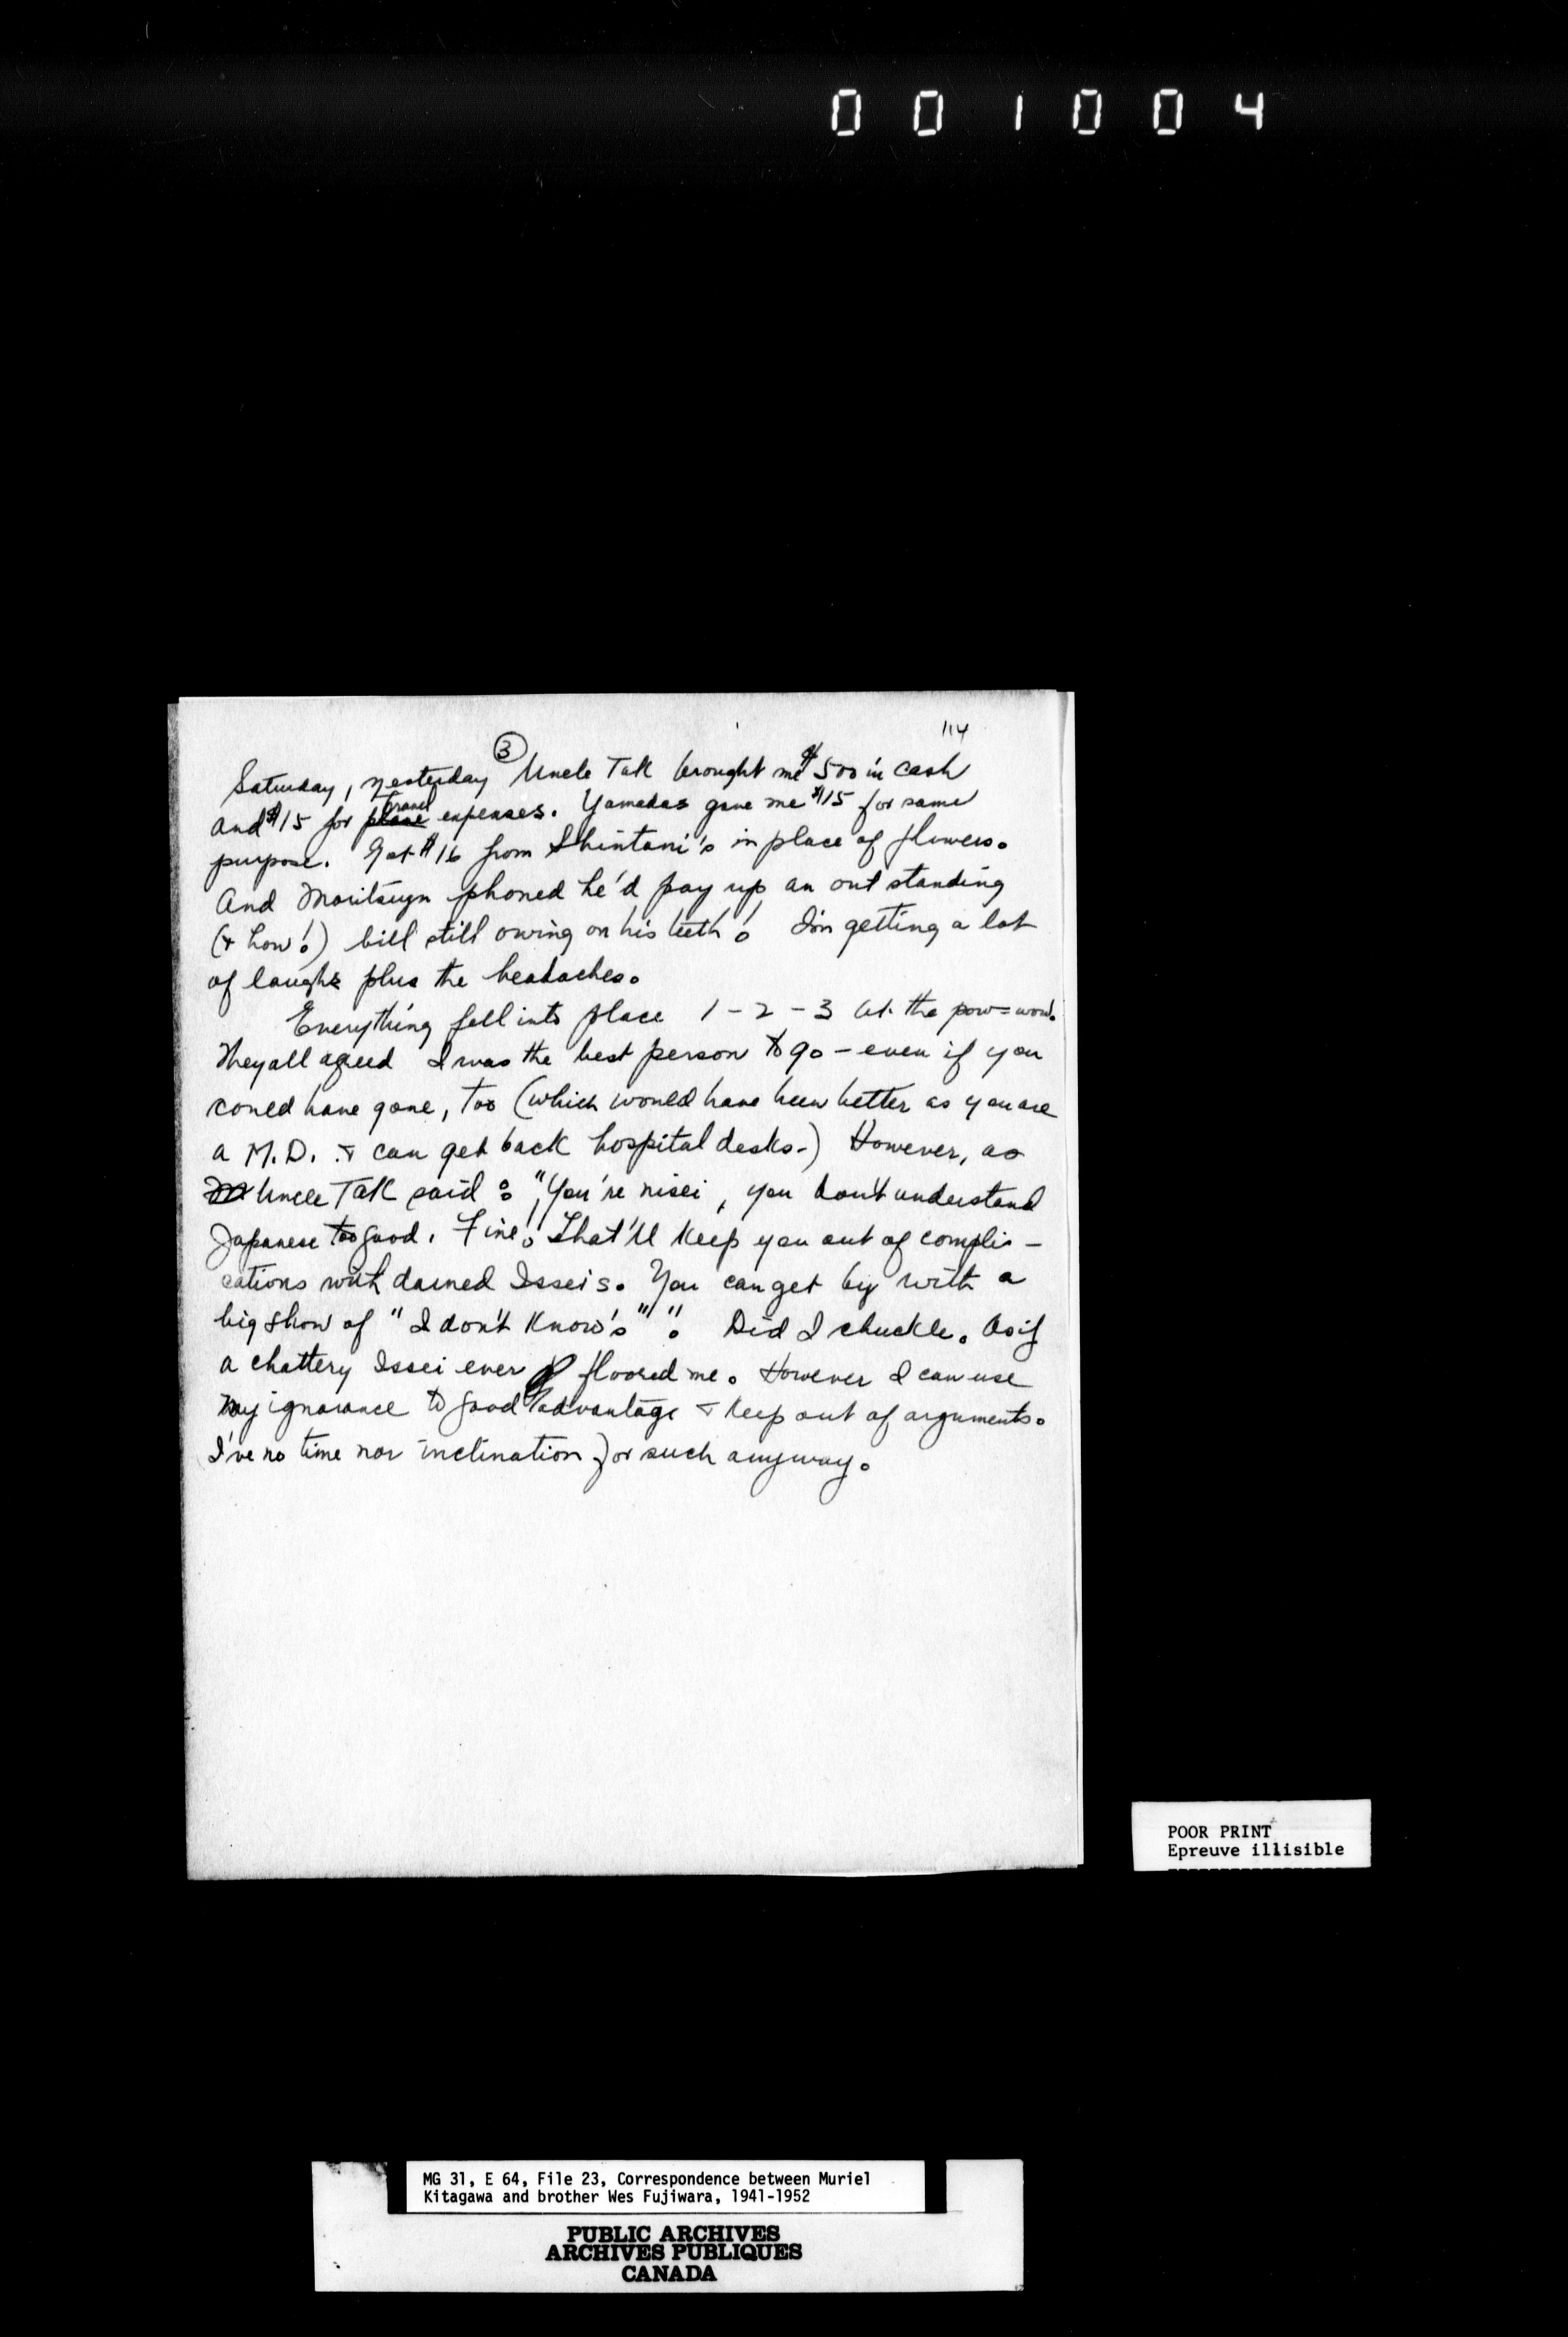 001004
114
3
Saturday, yesterday Uncle Tak brought me $500 in cash
and $15 for plane travel expenses. Yamadas gave me $15 for same
purpose. Got $16 from Shintani's in place of flowers.
And phoned he'd pay up an outstanding
(& how!) bill still owing on his teeth! I'm getting a lot
of laughs plus the headaches.
Everything fell into place 1-2-3 at the pow-wow.
They all agreed I was the best person to go - even if you
could have gone, too (which would have been better as you are
a M.D. & can get back hospital desks.) However, as
Uncle Tak said: "You're nisei, you don't understand
Japanese too good. Fine! That'll keep you out of compli-
cations with darned Isseis. You can get by with a
big show of "I don't know's"". Did I chuckle. As if
a chattery Issei ever floored me. However I can use
my ignorance to good advantage & keep out of arguments.
I've no time nor inclination for such anyway.
POOR PRINT
Epreuve illisible
MG 31, E 64, File 23, Correspondence between Muriel
Kitagawa and brother Wes Fujiwara, 1941-1952
PUBLIC ARCHIVES
ARCHIVES PUBLIQUES
CANADA